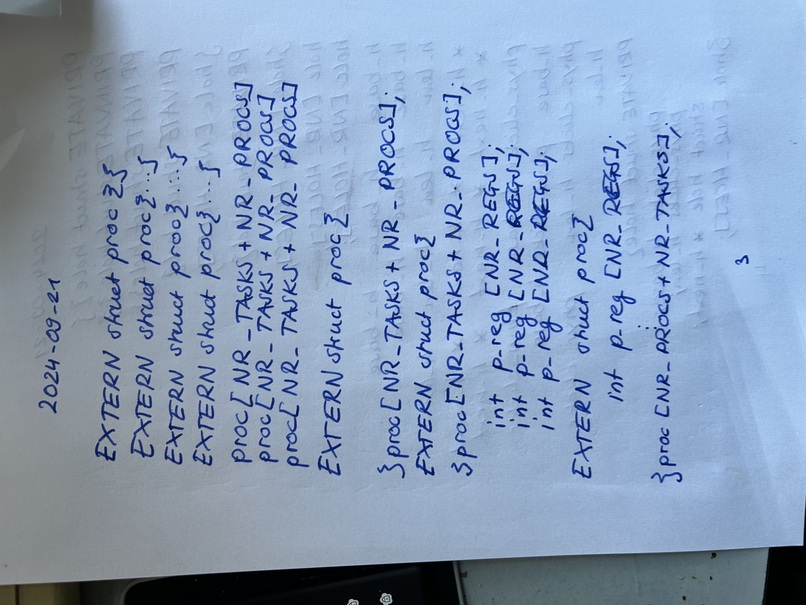 2024-09-21
EXTERN struct proc {}
EXTERN struct proc{...}
EXTERN struct proc{....}
EXTERN struct proc{...}
proc[NR_TASKS+NR_PROCS]
proc[NR_TASKS+NR_PROCS]
proc[NR_TASKS+NR_PROCS]
EXTERN struct proc{
}proc[NR_TASKS+NR_PROCS];
EXTERN struct proc{
}proc[NR_TASKS+NR_PROCS];
int p_reg [NR_REGS];
int p_reg [NR_REGS];
int p_reg [NR_REGS];
EXTERN struct proc{
int p_reg [NR_REGS];
}proc [NR_PROCS+NR_TASKS];
3